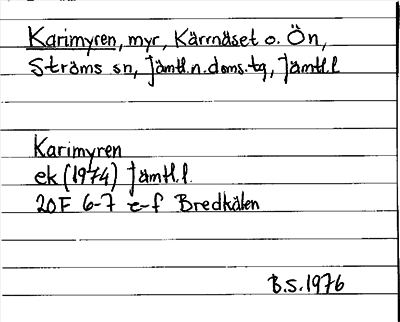 Karimyren, myr, Kärrnäset o. Ön,
Ströms sn, Jämtl.n.doms.tg, Jämtl.l
Karimyren
ek (1974) Jämtl.l.
20F 6-7 e-f Bredkälen
B.S. 1976